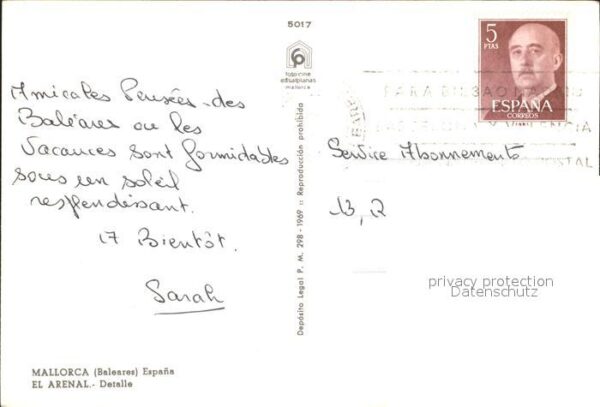 5017
foto cine
mallorca
5
PTAS
ESPAÑA
CORREOS
PARA BILBAO
Amicales Pensées des
Baléares ou les
Vacances sont formidables
sous un soleil
resplendissant.
A Bientôt.
Sarah
Service Abonnements
13, R
privacy protection
Datenschutz
Depósito Legal P. M. 298 - 1969 :: Reproducción prohibida
MALLORCA (Baleares) España
EL ARENAL.- Detalle